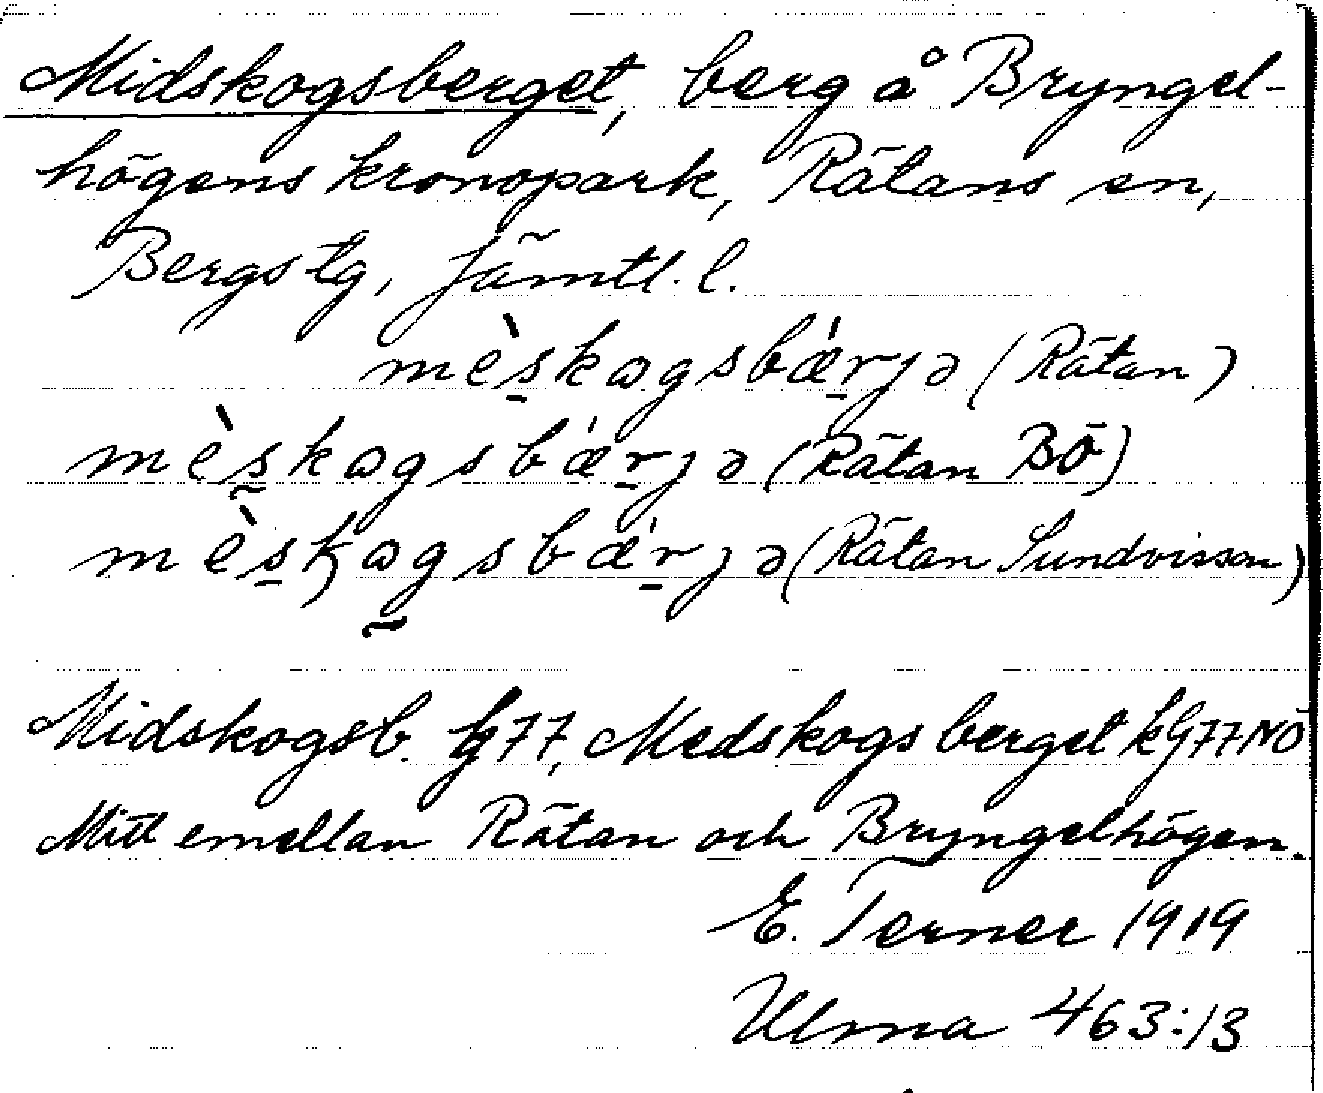 Midskogsberget, berg å Bryngel-
högens kronopark, Rätans sn,
Bergs tg, Jämtl. l.
mèskogsbǽrjə (Rätan)
mèskogsbǽrjə (Rätan BÖ)
mèskogsbǽrjə (Rätan Sundvisson)
Midskogsb. g77, Medskogsberget kG77NÖ
Mitt emellan Rätan och Bryngelhögen.
E. Terner 1919
Ulma 463:13